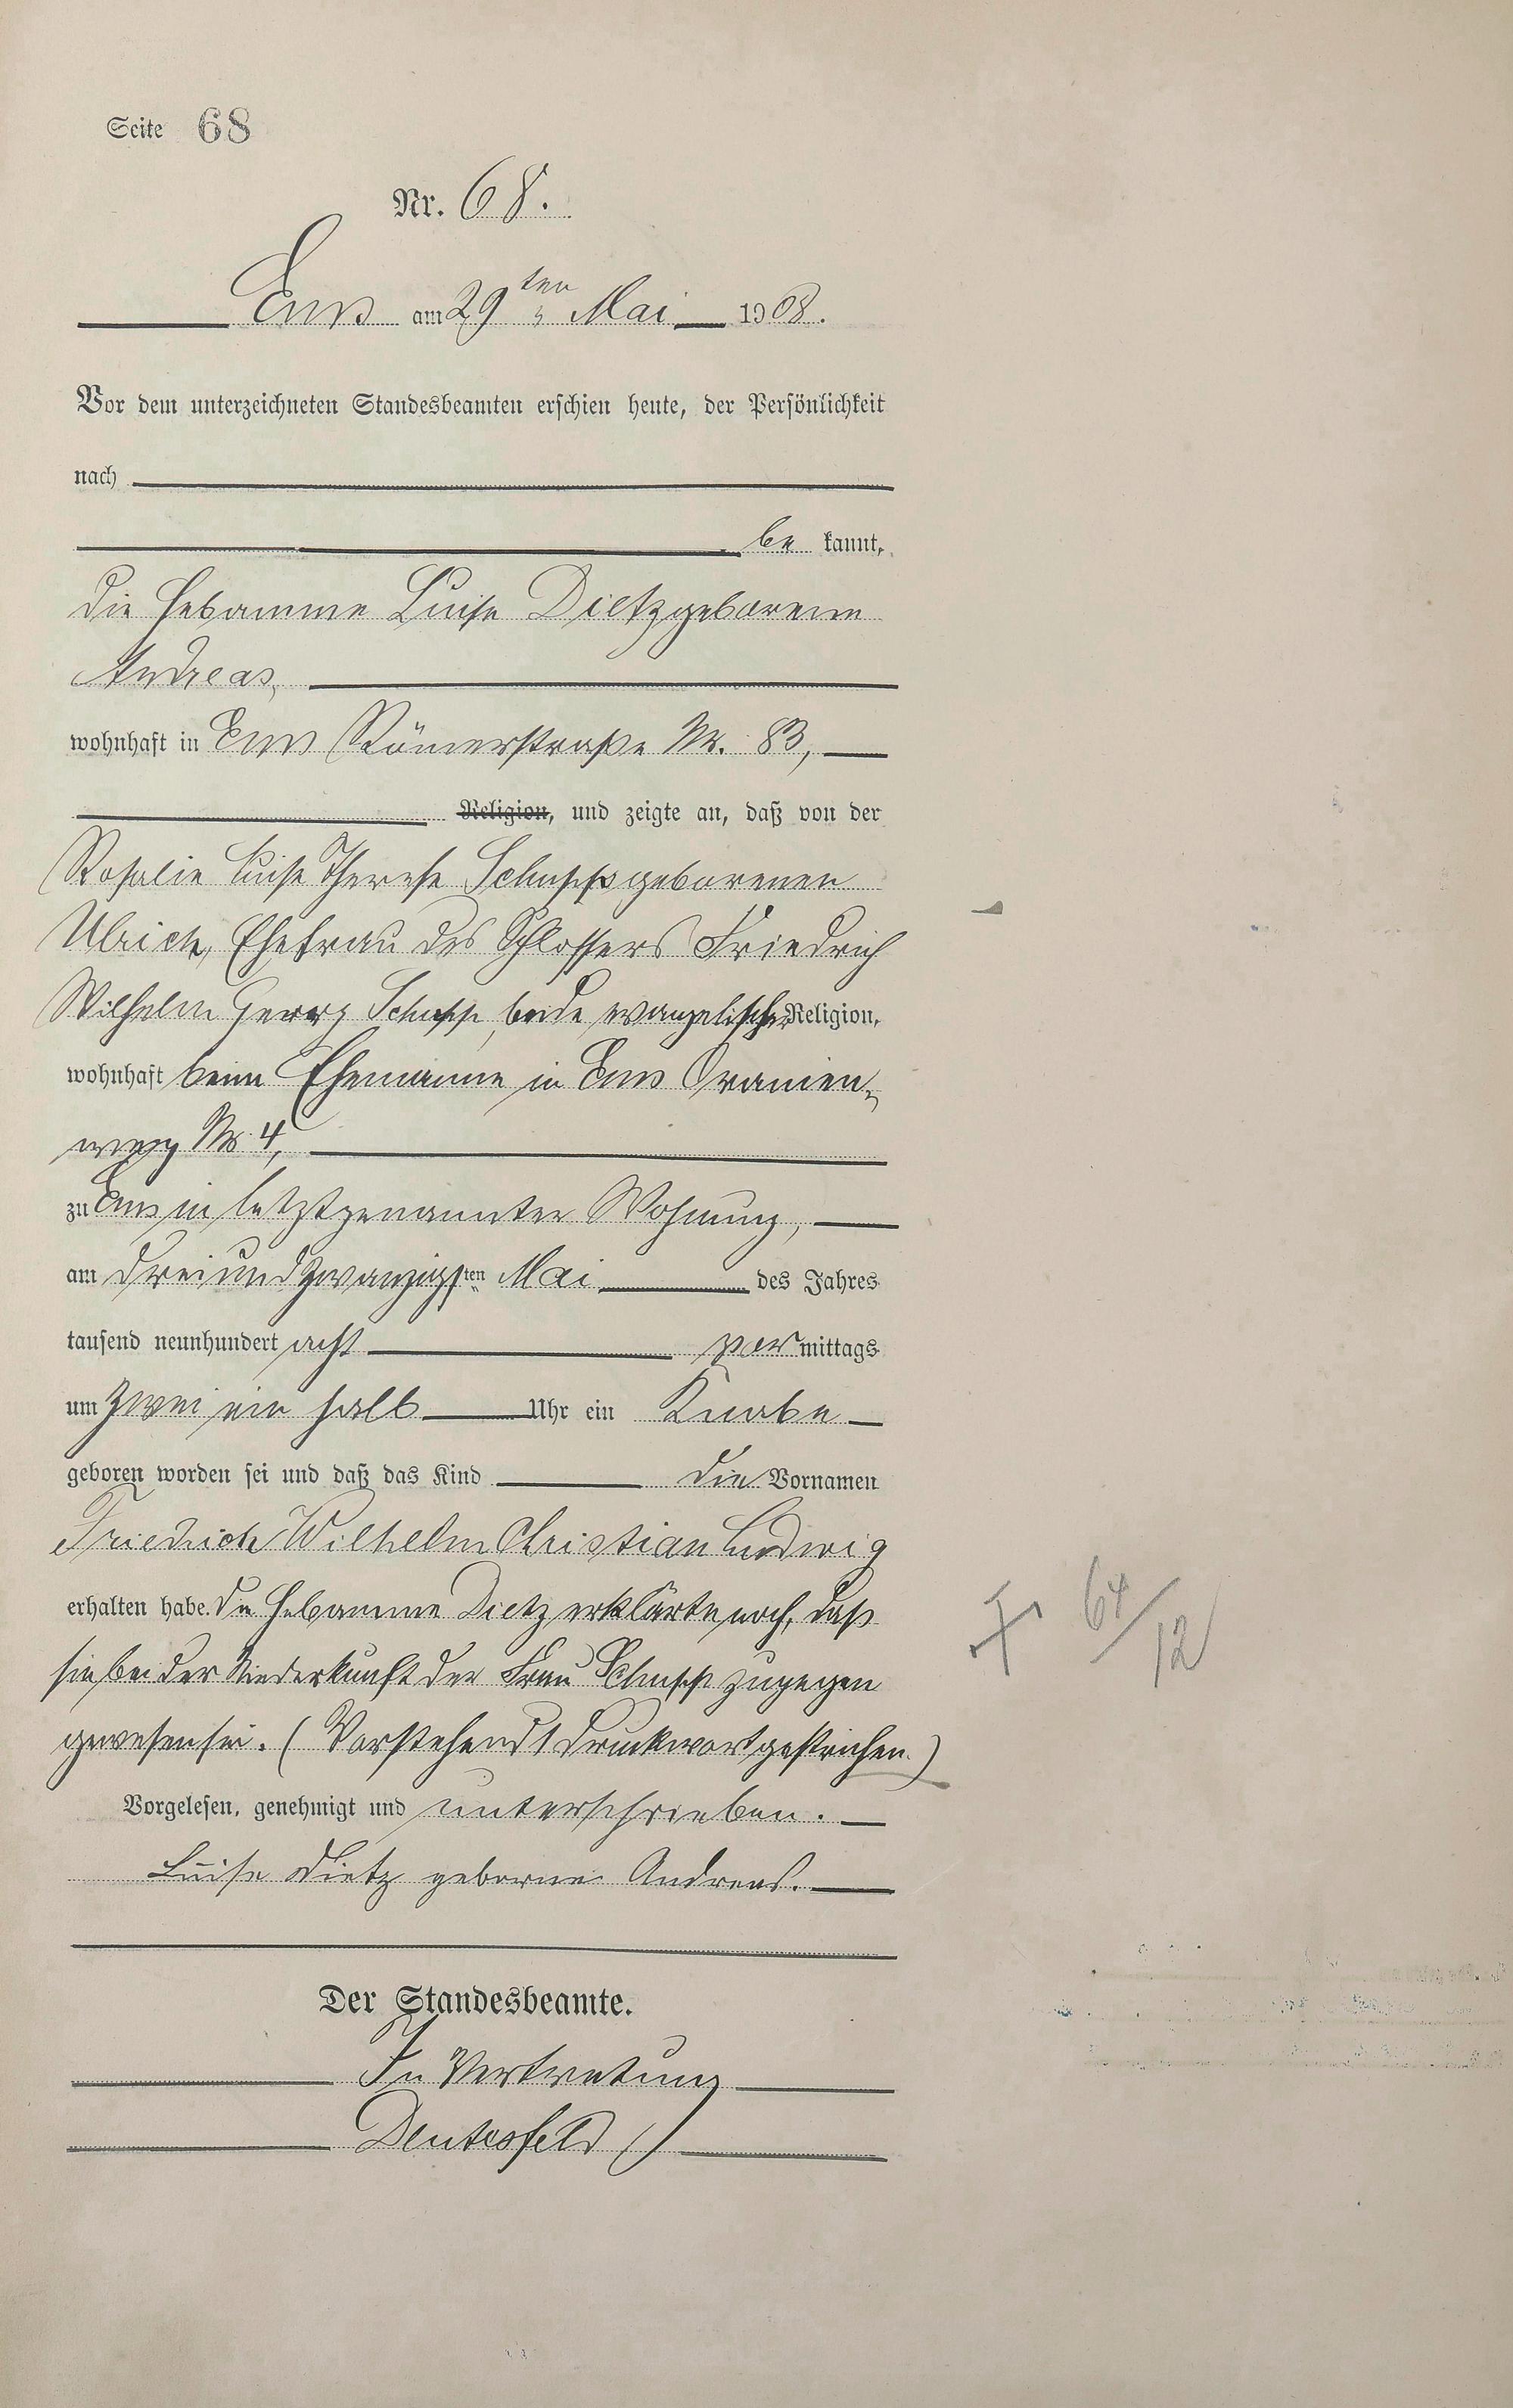 Seite 68
Nr. 68.
Ems am 29ten Mai 1908.
Vor dem unterzeichneten Standesbeamten erschien heute, der Persönlichkeit
nach
be kannt,
die Hebamme Luise Dietz geborene
Andreas,
wohnhaft in Ems Römerstraße Nr. 83,
Religion, und zeigte an, daß von der
Rosalie Luise Therese Schupp geborenen
Ulrich, Ehefrau des Schlossers Friedrich
Wilhelm Georg Schupp, beide evangelischer Religion,
wohnhaft beim Ehemanne in Ems Oranien-
weg Nr. 4,
zu Ems in letztgenannter Wohnung,
am dreiundzwanzigsten Mai des Jahres
tausend neunhundert acht vor mittags
um zwei ein halb Uhr ein Knabe
geboren worden sei und daß das Kind die Vornamen
Friedrich Wilhelm Christian Ludwig
erhalten habe. Die Hebamme Dietz erklärte noch, daß
sie bei der Niederkunft der Frau Schupp zugegen
gewesen sei. (Vorstehend 1 Druckwort gestrichen.)
Vorgelesen, genehmigt und unterschrieben.
Luise Dietz geborne Andreas.
Der Standesbeamte.
In Vertretung
† 64/12